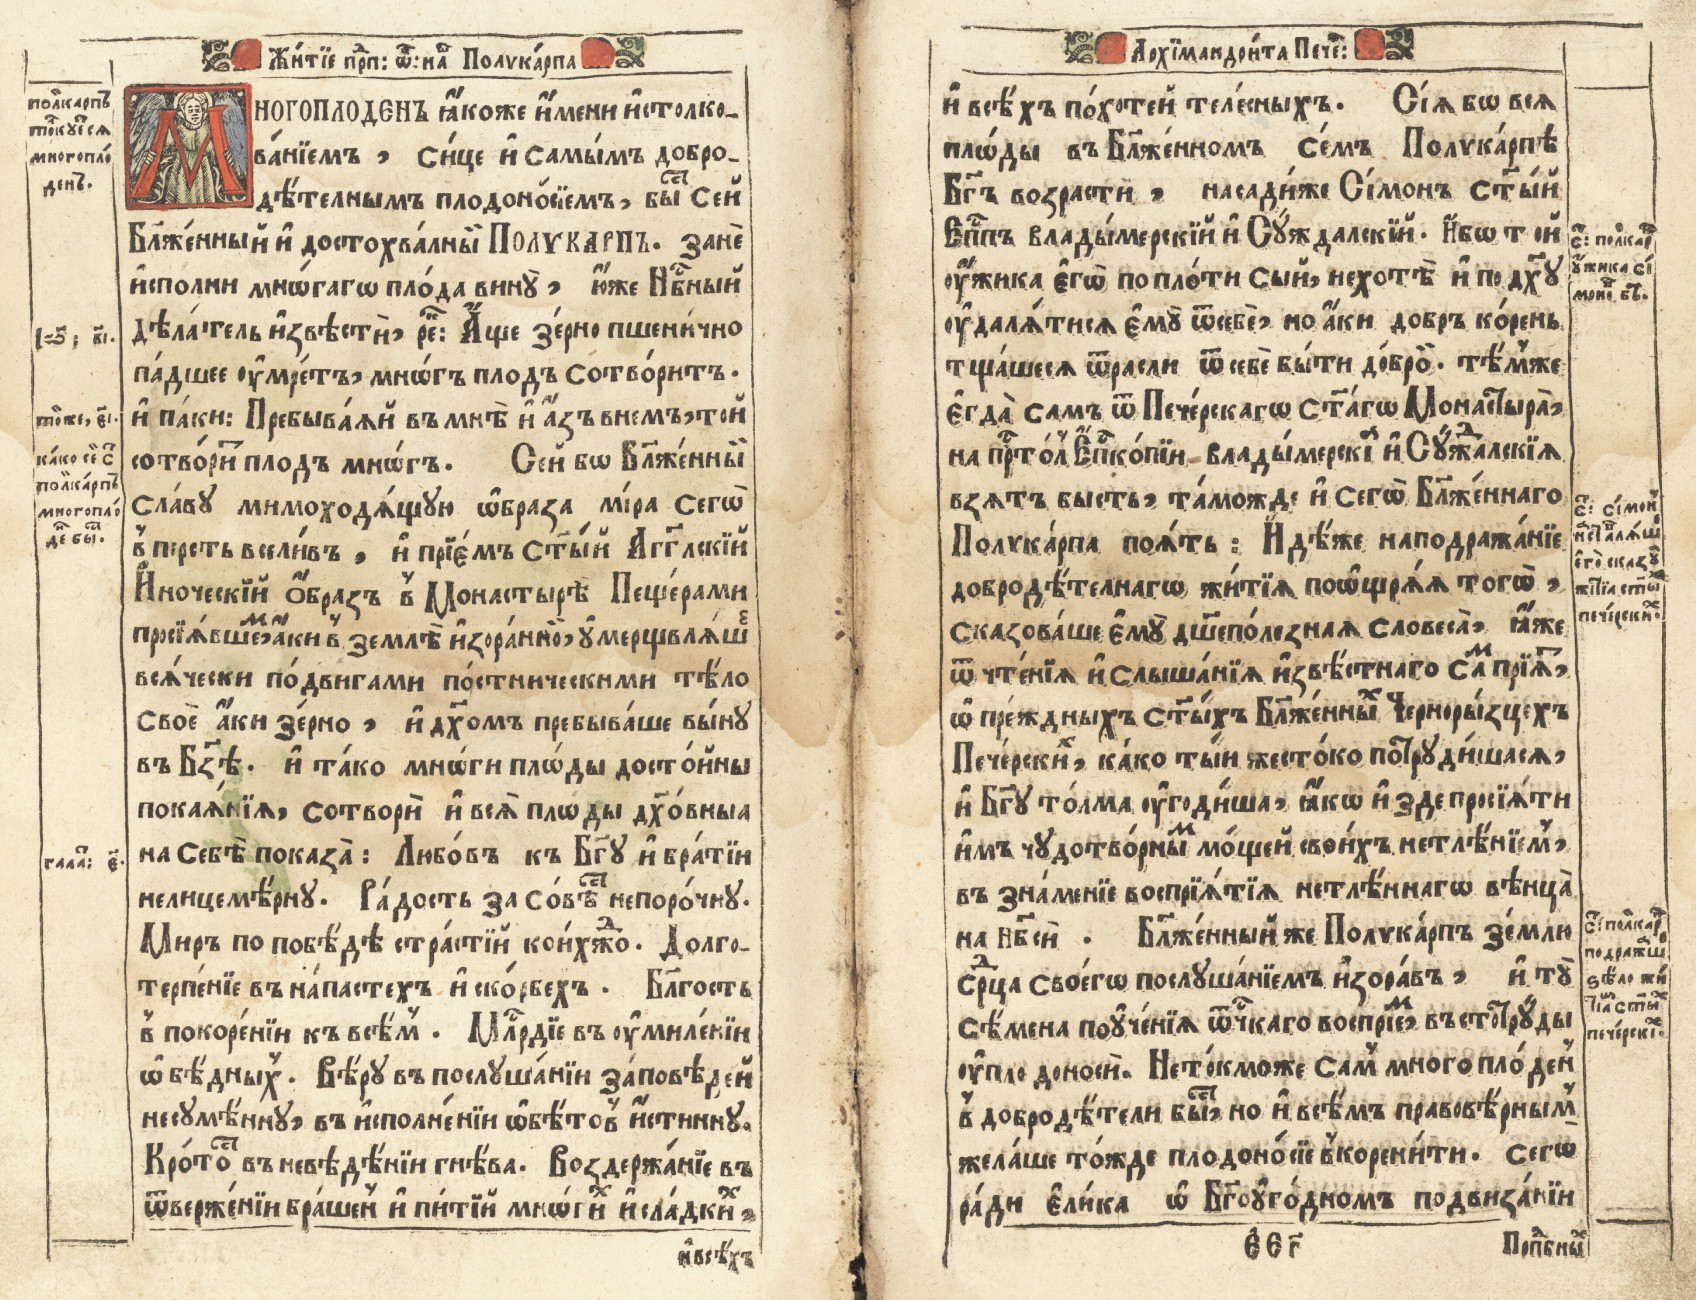 Жи́тїе прⷣп: ѿ: на́ш Полѵка́рпа
пол̾карпъ
тол̾куетсѧ
многопло́
денъ.
МНОГОПЛОДЕНЪ ꙗ҆́коже и҆́мени и҆столко-
ва́нїемъ, си́це и҆ самы́мъ добро-
дѣ́телнымъ плодоно́сїемъ, бы́сть сей
Бл҃же́нный и҆ достохва́лный ПОЛѴКАРПЪ. занѐ
и҆сполни мнѡ́гагѡ пло́да вину̀, ю҆́же Нб҃ный
дѣ́латель и҆звѣстѝ, ре́: А҆́ще зе́рно пшени́чно
па́дшее оу҆́мретъ, мнѡ́гъ плодъ сотвори́тъ.
и҆ па́ки: Пребыва́ѧй въ мнѣ̀ и҆ а҆́зъ внемъ, той
сотвори́т плодъ мнѡ́гъ. Сей бо Бл҃же́нный
сла́ву мимоходѧ́щую ѡ҆́браза мі́ра сегѡ̀
в̾ персть все́ливъ, и҆ прїе́мъ ст҃ы́й А҆́гг҃лскїй
И҆́ноческїй ѻ҆́бразъ в̾ Монастырѣ̀ Пеще́рами
просїѧ́вшем, а҆́ки в̾ землѣ̀ и҆зора́нной, оу҆мерщвлѧ́ше
всѧ́чески по́двигами по́стническими тѣ́ло
своѐ а҆́ки зе́рно, и҆ дх҃омъ пребыва́ше вы́ну
въ Бз҃ѣ. и҆ та́ко мнѡ́ги плѡ́ды досто́йны
покаѧ́нїѧ, сотворѝ и҆ всѧ̀ плѡ́ды дх҃о́вныѧ
на себѣ̀ показа̀: Любо́въ къ Бг҃у и҆ бра́тїи
нелицемѣ́рну. Ра́дость за со́вѣсть непоро́чну.
Миръ по побѣ́дѣ стра́стїй коихждо. Долго-
терпе́нїе въ на́пастехъ и҆ ско́рбехъ. Бл҃гость
в̾ покоре́нїи къ всѣ́м. Мл҃рдїе въ оу҆миле́нїи
ѡ҆ бѣ́дных. Вѣ́ру въ послуша́нїи за́повѣдей
несумѣ́нну, въ и҆сполне́нїи ѡ҆бѣ́тов и҆́стинну.
Кро́тость въ невѣ́дѣнїи гнѣ́ва. Воздержа́нїе въ
ѿверже́нїи бра́шен и҆ пи́тїй мнѡ́гих и҆ сла́дких,
і҆ѡ҃: в҃і.
то́же, є҃і.
ка́ко се́й ст҃
пол̾ка́рпъ
многопло́
де́нъ бы́.
гала́т: є҃.
и҆ всѣ́хъ
Архїмандри́та Пече́:
и҆ всѣ́хъ по́хотей теле́сныхъ. Сі́ѧ бѡ всѧ
плѡ́ды въ Бл҃же́нномъ се́мъ Полѵка́рпѣ
Бг҃ъ возрасти̂, насади́же Сі́монъ ст҃ы́й
Є҆пⷭ҇пъ влады́мерскїй и҆ Су́ждалскїй. И҆́бо той
оу҆́жика є҆гѡ̀ по пло́ти сый, не хотѣ̀ и҆ по дх҃у
оу҆далѧ́тисѧ є҆му̀ ѿ себѐ, но а҆́ки добръ ко́рень
тща́шесѧ ѿрасли ѿ себѐ бы́ти до́бро̀. тѣ́мже
є҆гда̀ самъ ѿ Пече́рскагѡ ст҃а́гѡ Монастыра̀,
на пр҃то́л Є҆пⷭ҇ко́пїи влады́мерскїѧ и҆ Су́ждалскїѧ
взѧ́тъ бы́сть, та́можде и҆ сегѡ̀ Бл҃же́ннаго
Полѵка́рпа поѧ́тъ: И҆дѣ́же наподража́нїе
добродѣ́телнагѡ жи́тїѧ поѡ҆щрѧ́ѧ тогѡ̀,
сказова́ше є҆му̀ дш҃еполе́знаѧ словеса̀, ꙗ҆́же
ѿ чте́нїѧ и҆ слыша́нїѧ и҆звѣ́стнаго самъ прїѧ́т,
ѡ҆ пре́ждныхъ ст҃ы́хъ Бл҃же́нных Черноры́зцехъ
Пече́рских, ка́ко ты́и жесто́ко потруди́шасѧ,
и҆ Бг҃у то́лма оу҆годи́ша, ꙗ҆́кѡ и҆ зде просїѧ́ти
и҆́мъ чудотво́рным моще́й свои́хъ нетлѣ́нїем,
въ зна́менїе воспрїѧ́тїѧ нетлѣ́ннагѡ вѣнца̀
на нб҃сѝ. Бл҃же́нный же Полѵка́рпъ зе́млю
ср҃дца своегѡ послуша́нїемъ и҆зора́въ, и҆ ту̀
сѣ́мена поуче́нїѧ ѿч҃каго воспрїе́м, въ стотруды
оу҆плодоносѝ. Не то́кможе сам многопло́ден
в̾ добродѣ́тели бы́сть, но и҆ всѣ́мъ правовѣ́рным
жела́ше то́жде плодоно́сїе вкорени́ти. Сегѡ
ра́ди є҆ли́ка ѡ҆ Бг҃оуго́дномъ подвиза́нїи
с҃: пол̾ка́р
оу҆́жика сі́
мо́нов бѣ̀.
с҃: сі́мон
наставлѧ́ѧ
є҆го̀ сказу́ет
жи́тїа ст҃ых
пече́рских.
с҃: пол̾ка́р
подража́ше
ѕѣло жи́
тїа ст҃ых
пече́рских.
С҃Є҃Г҃
Прпⷣбных